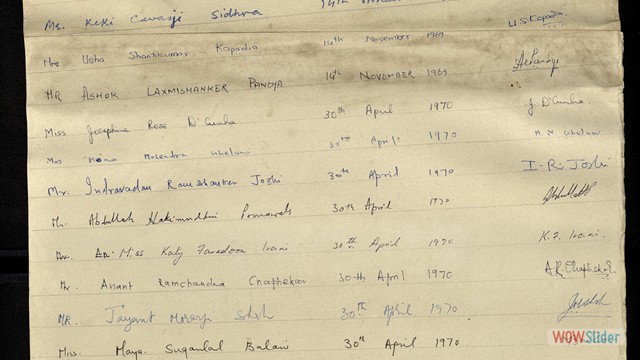 Mr. Keki Cavasji Sidhva 14th
Mrs Usha Shantikumar Kapadia 14th November 1969 U.S. Kapadia.
MR ASHOK LAXMISHANKER PANDYA 14th NOVEMBER 1969 ALPandya
Miss Josephine Rose D'Cunha 30th April 1970 J D'Cunha.
Mrs 30th April 1970
Mr. Indravadan Ramshanker Joshi 30th April 1970 I. R. Joshi
Mr. Abdullah 30th April 1970
Miss Katy Faredoon Irani 30th April 1970 K.F. Irani.
Mr. Anant Ramchandra Chaphekar 30th April 1970 A.R. Chaphekar
MR. Jayant Morarji Shah 30TH April 1970
Miss. Maya Suganlal Balani 30th April 1970
WOWSlider